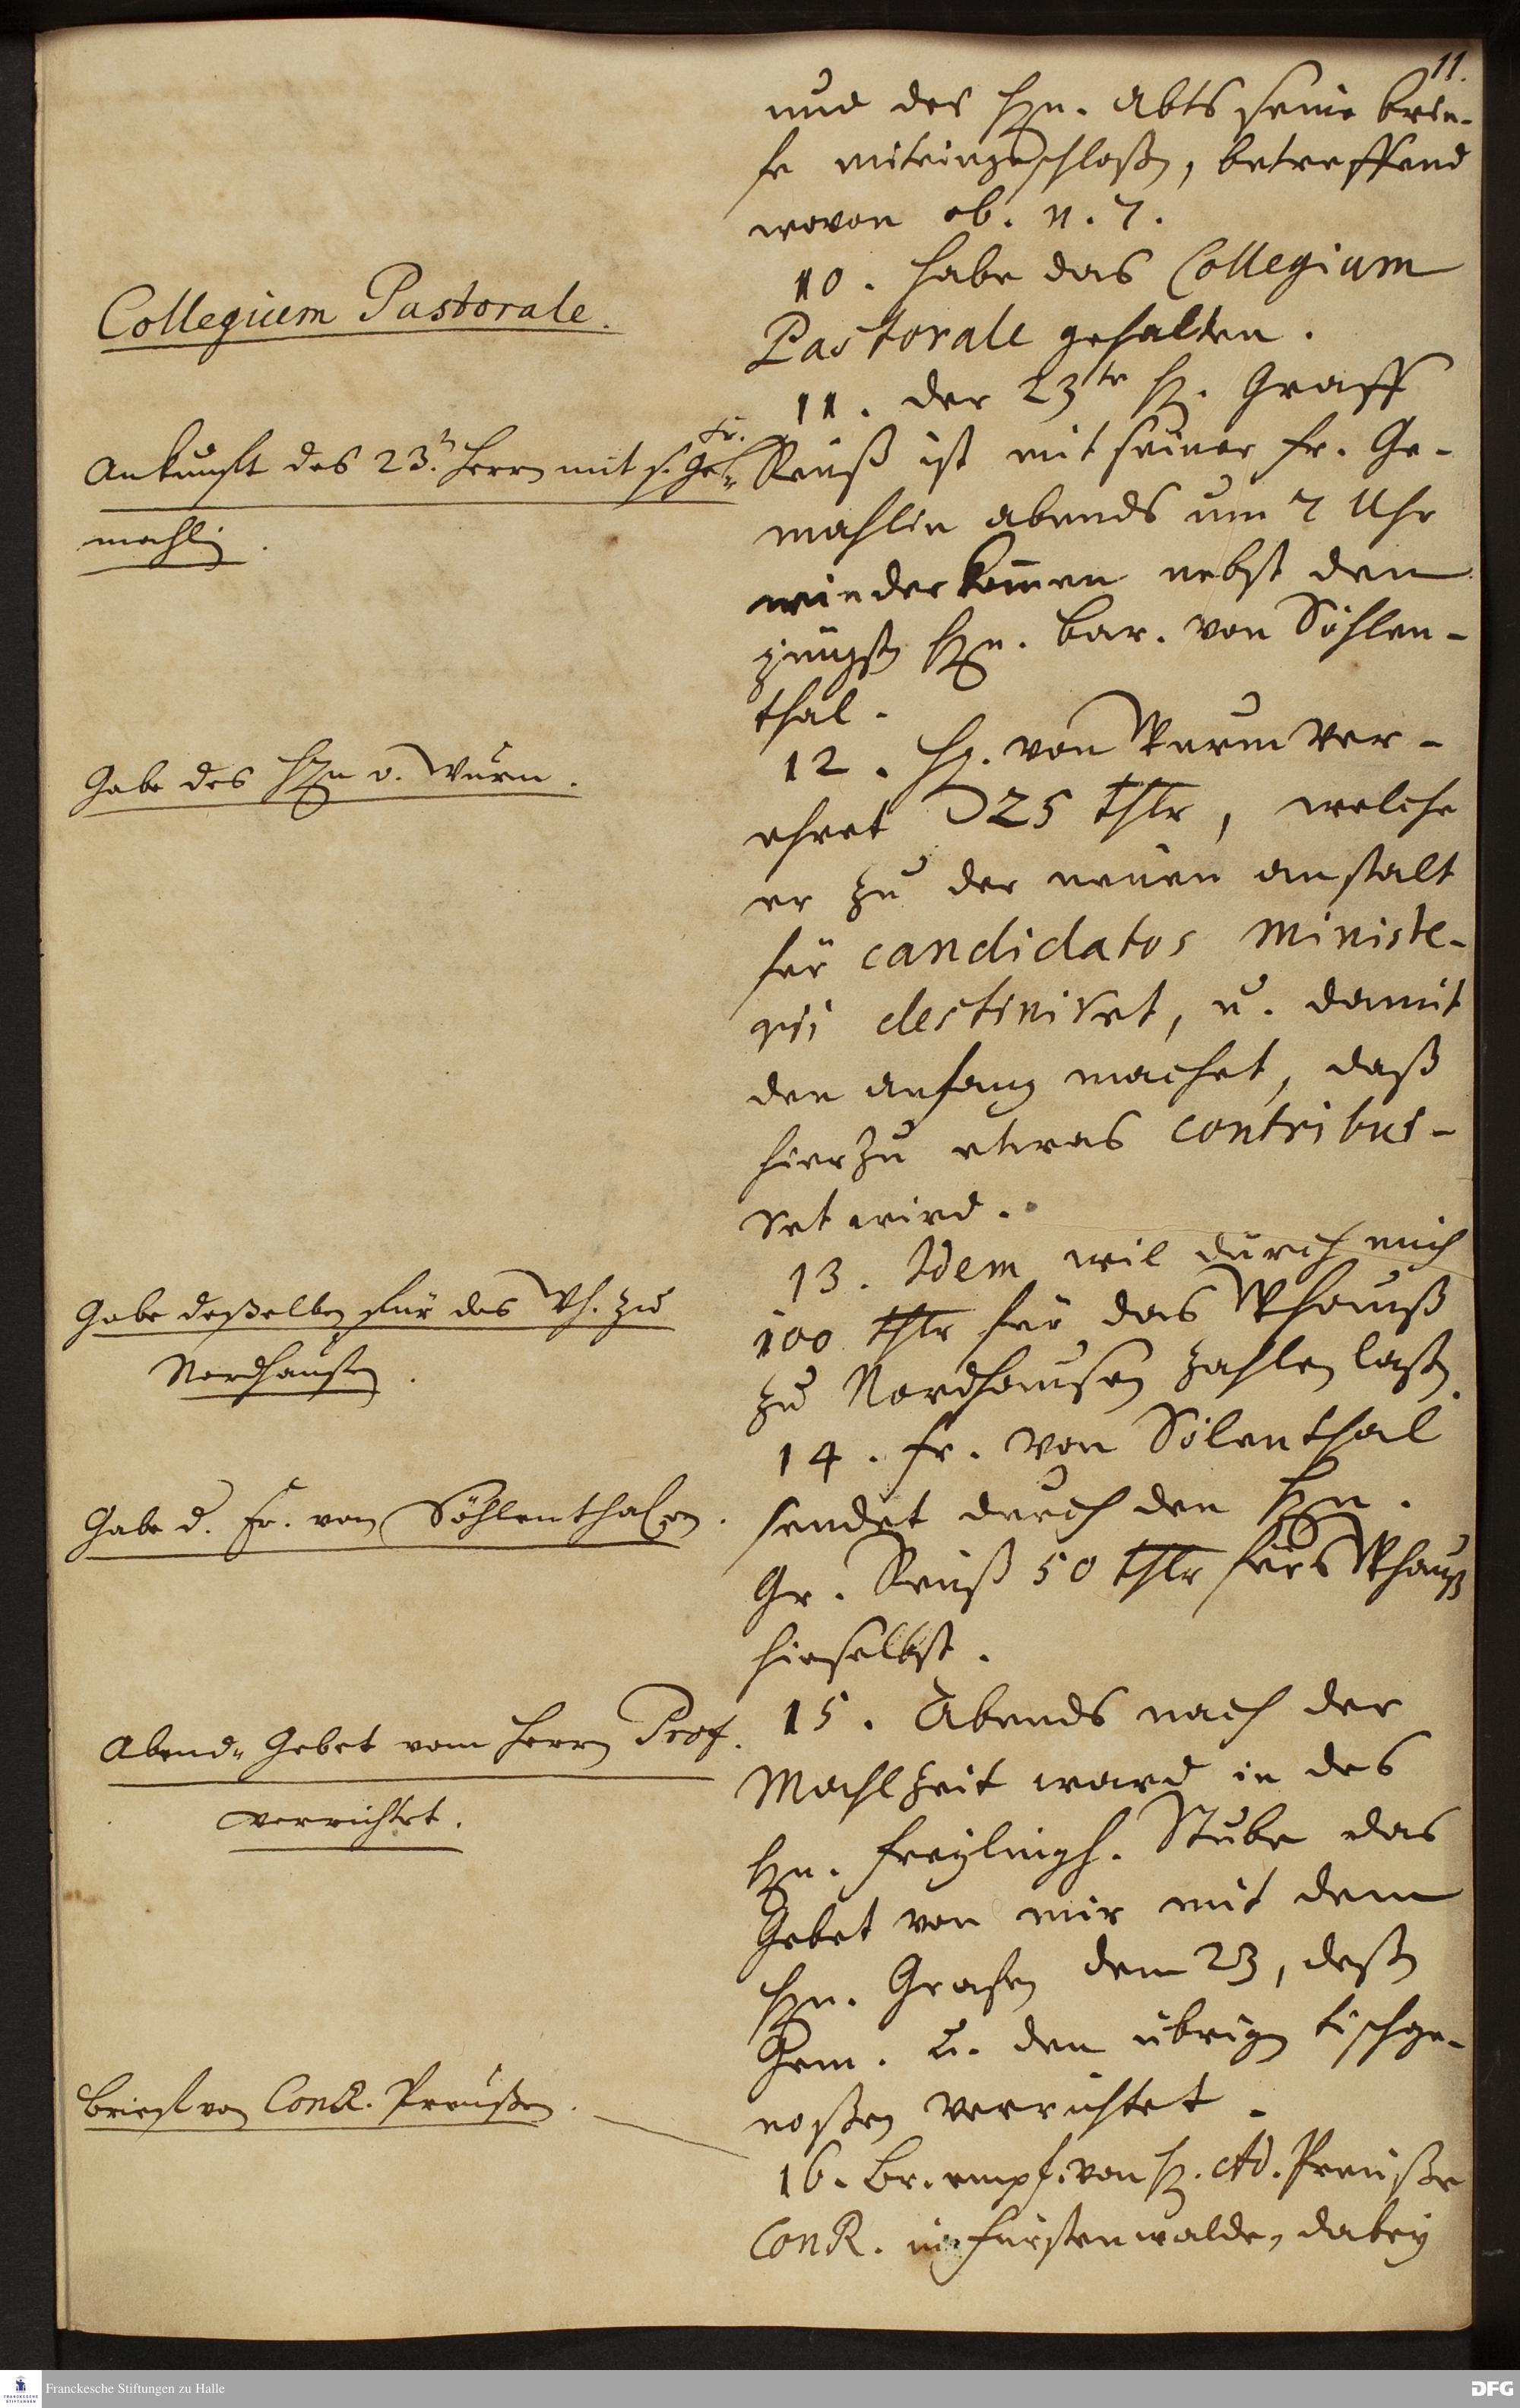 11.
und des Hn. Abts seine brie-
fe miteingeschloßen, betreffend
wovon ob. n. 7.
Collegium Pastorale.
10. habe das Collegium
Pastorale gehalten.
Ankunft des 23. Herrn mit s. Fr. Ge-
mahlin.
11. der 23te H. Graff
Reuß ist mit seiner Fr. Ge-
mahlin abends um 7 Uhr
wiederkommen nebst dem
jüngsten Hn. Bar. von Söhlen-
thal.
Gabe des Hn v. Wurm.
12. H. von Wurm ver-
ehret 25 thlr, welche
er zu der neuen anstalt
für candidatos ministe-
rii destiniret, u. damit
den anfang machet, daß
hierzu etwas contribui-
ret wird.
Gabe deßelben für das Wh. zu
Nordhausen.
13. Idem wil durch mich
100 thlr für das Whauß
zu Nordhausen zahlen laßen.
Gabe d. Fr. von Söhlenthalen.
14. Fr. von Sölenthal
sendet durch den Hn.
Gr. Reuß 50 thlr fürs Whauß
hieselbst.
Abend-Gebet vom Herrn Prof.
verrichtet.
15. Abends nach der
Mahlzeit ward in des
Hn. Freylingh. Stube das
Gebet von mir mit dem
Hn. Grafen dem 23, deßen
Gem. u. den übrigen tischge-
noßen verrichtet.
Brief von ConR. Preußen.
16. Br. empf. von H. Ad. Preuße
ConR. in Fürstenwalde, dabey
Franckesche Stiftungen zu Halle
DFG